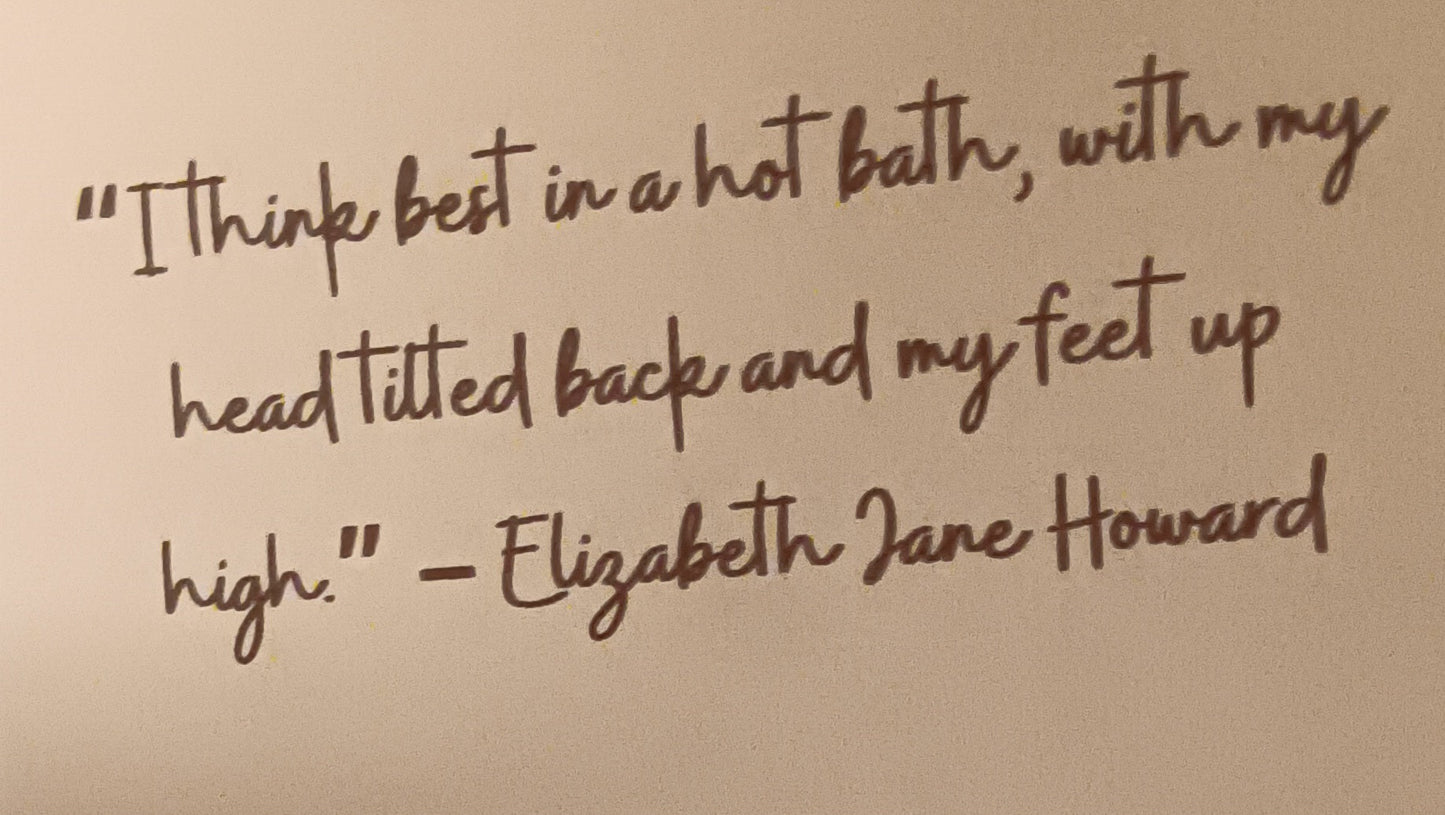 "I think best in a hot bath, with my
head tilted back and my feet up
high." – Elizabeth Jane Howard